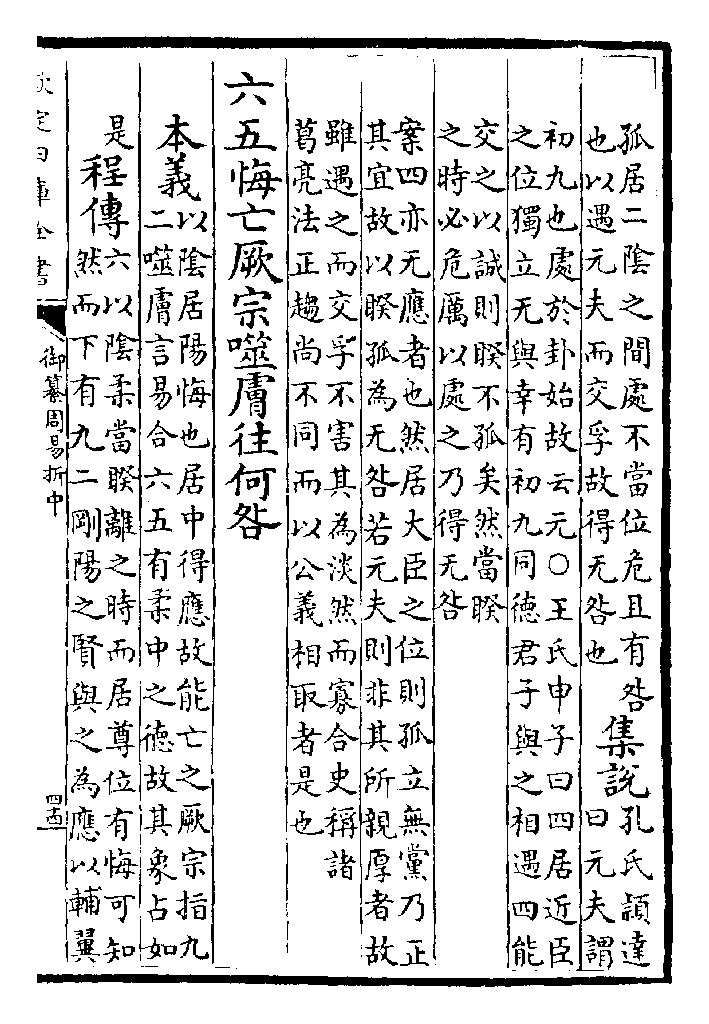 孤居二陰之間處不當位危且有咎
也以遇元夫而交孚故得无咎也
集說
孔氏穎達
曰元夫謂
初九也處於卦始故云元○王氏申子曰四居近臣
之位獨立无與幸有初九同德君子與之相遇四能
交之以誠則睽不孤矣然當睽
之時必危厲以處之乃得无咎
案四亦无應者也然居大臣之位則孤立無黨乃正
其宜故以睽孤為无咎若元夫則非其所親厚者故
雖遇之而交孚不害其為淡然而寡合史稱諸
葛亮法正趨尚不同而以公義相取者是也
六五悔亡厥宗噬膚往何咎
本義
以陰居陽悔也居中得應故能亡之厥宗指九
二噬膚言易合六五有柔中之德故其象占如
是
程傳
六以陰柔當睽離之時而居尊位有悔可知
然而下有九二剛陽之賢與之為應以輔翼
欽定四庫全書
御纂周易折中